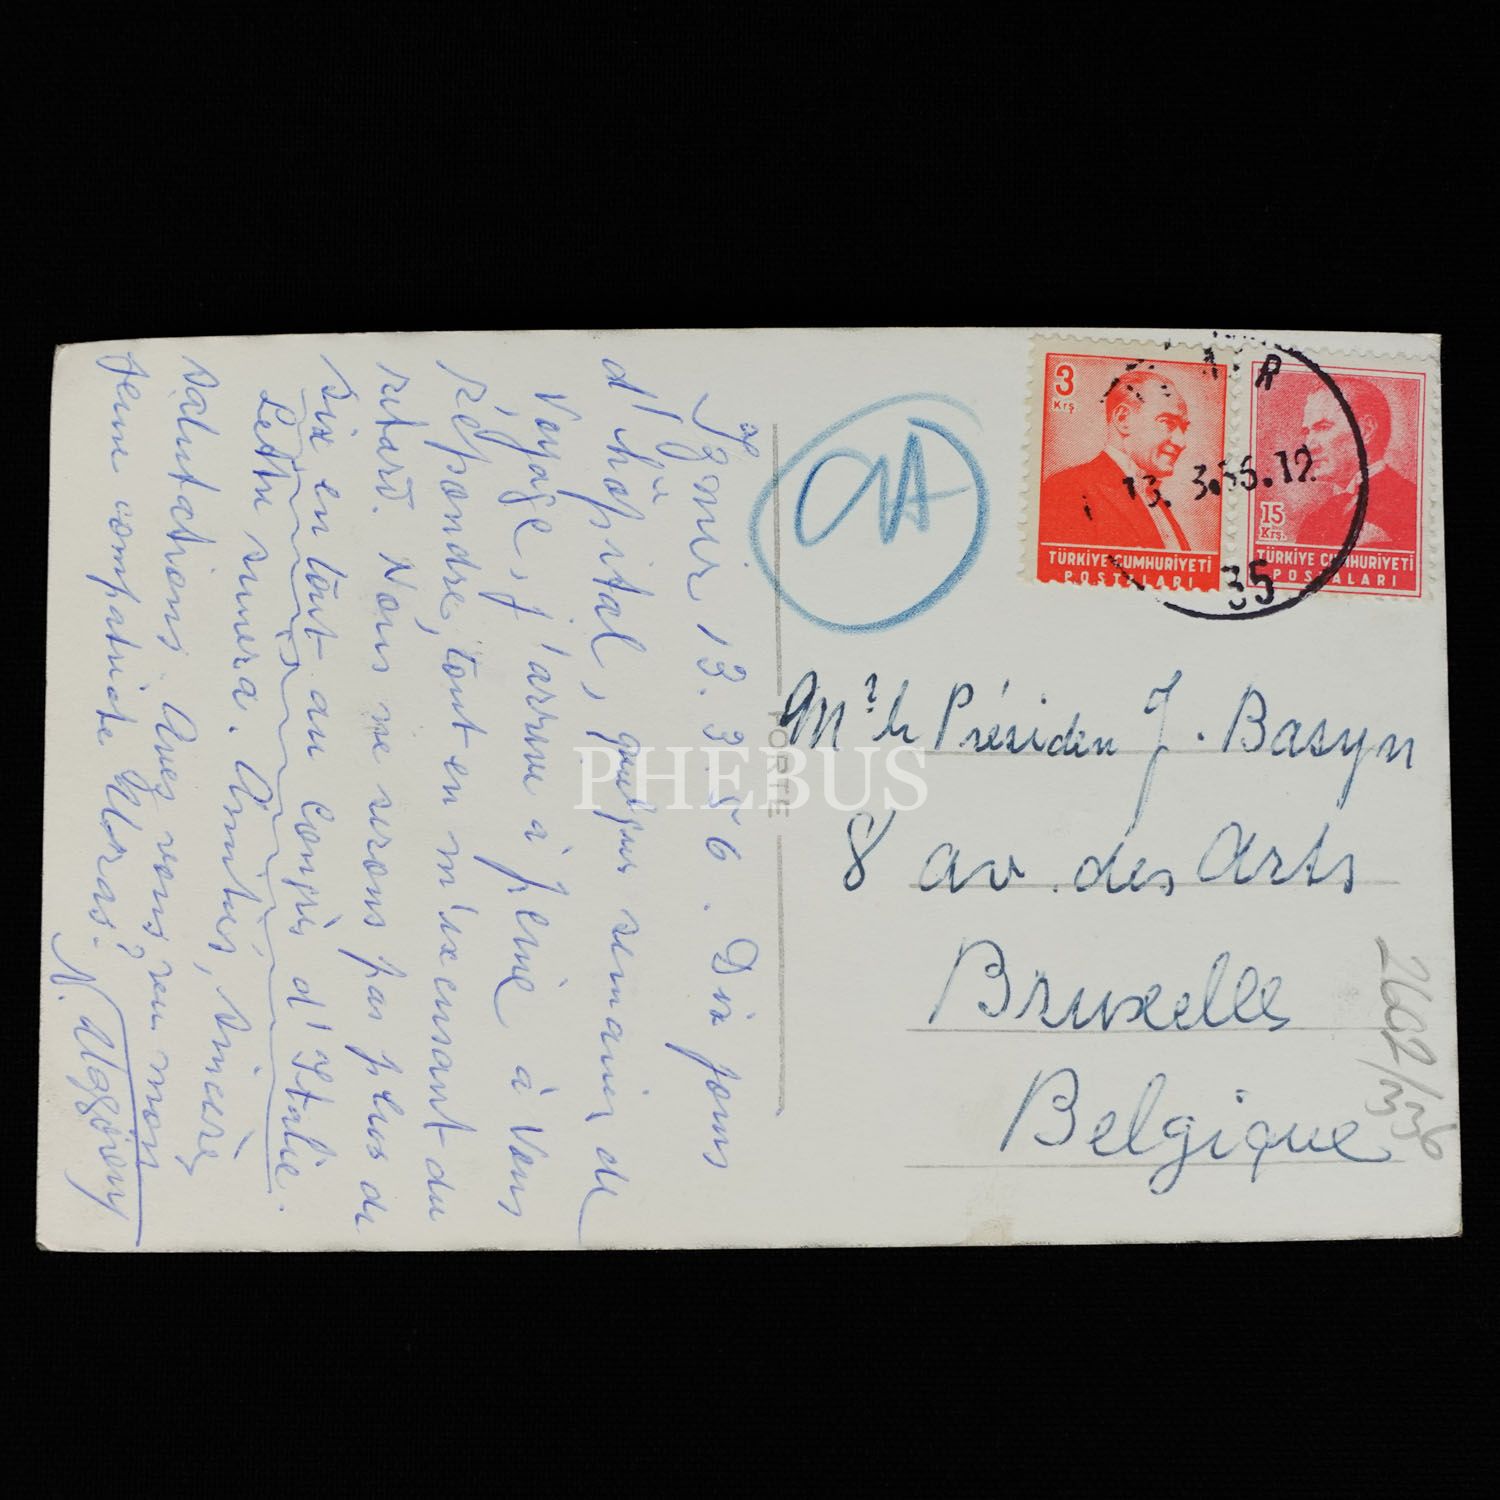 Izmir 13.3.56. Dix jours
d'hôpital, quelques semaines de
voyage, j'arrive à peine à vous
répondre, tout en m'excusant du
retard. Nous ne serons pas plus de
six en tout au congrès d'Italie.
Lettre suivra. Amitiés, sincères
salutations. Avez vous vu mon
jeune compatriote ? N.
3
Krş
TÜRKİYE CUMHURİYETİ
POSTALARI
15
Krş.
TÜRKİYE CUMHURİYETİ
POSTALARI
13. 3.56.12
35
Mr le Président J. Basyn
8 av. des Arts
Bruxelles
Belgique
2602/
PHEBUS